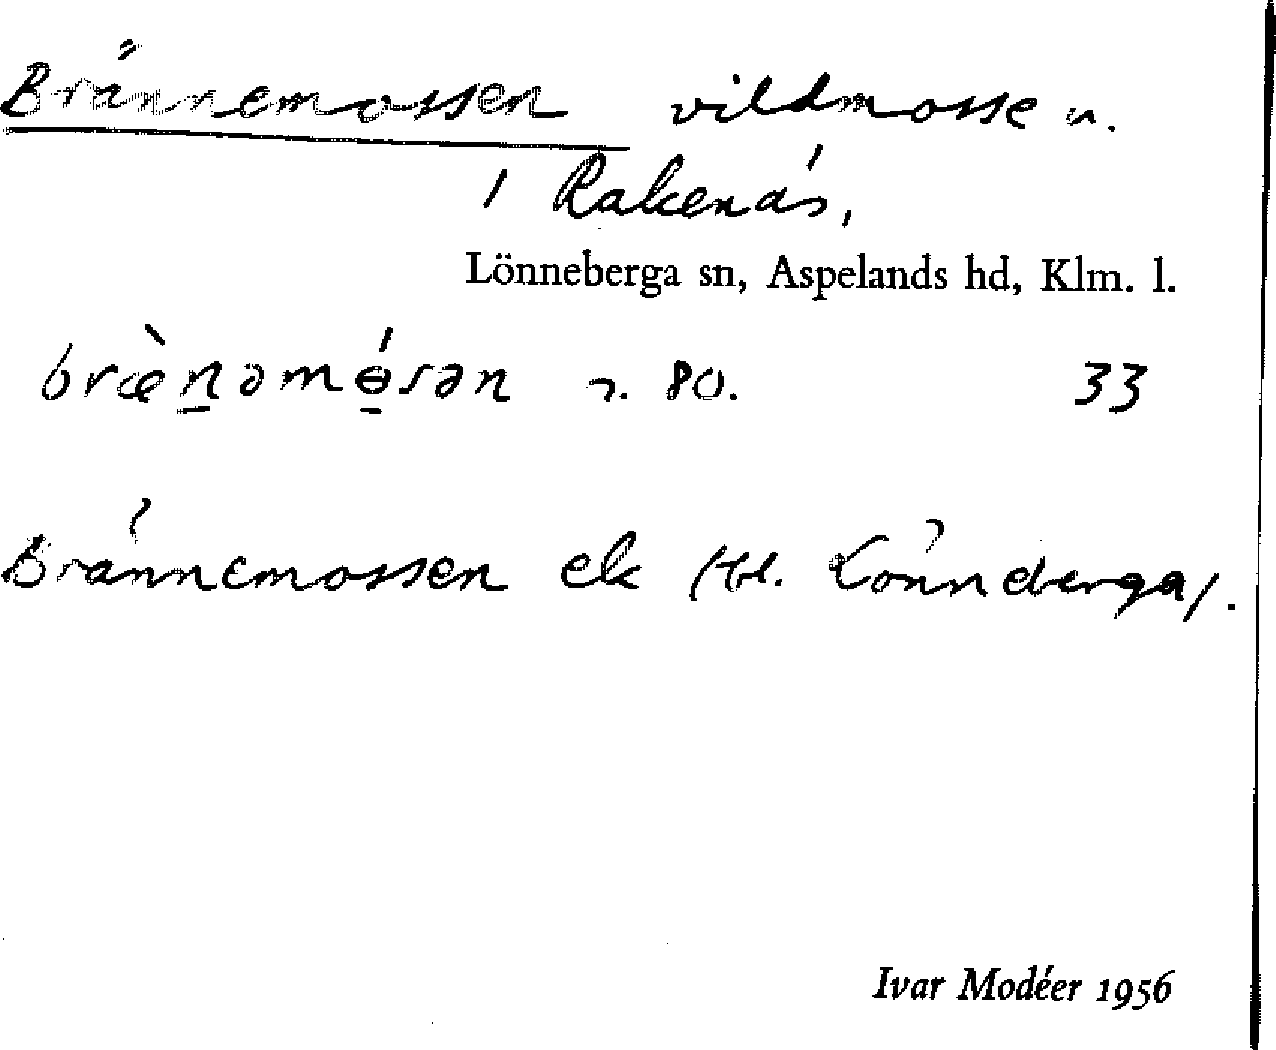 Brännemossen vildmosse n.
i Rakenäs,
Lönneberga sn, Aspelands hd, Klm. l.
bræ̀n̠əmɵ̠́sən n. 80. 33
Brännemossen ek (Hbl. Lönneberga).
Ivar Modéer 1956